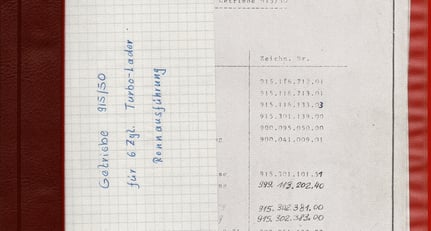 Getriebe 915/50
für 6 Zyl. Turbo-Lader
Rennausführung
Getriebe 915/50
Zeichn. Nr.
915.116.712.01
915.116.713.01
915.116.133.03
915.301.139.00
900.095.050.00
900.041.009.01
915.301.101.51
999.113.202.40
915.302.381.00
915.302.383.00